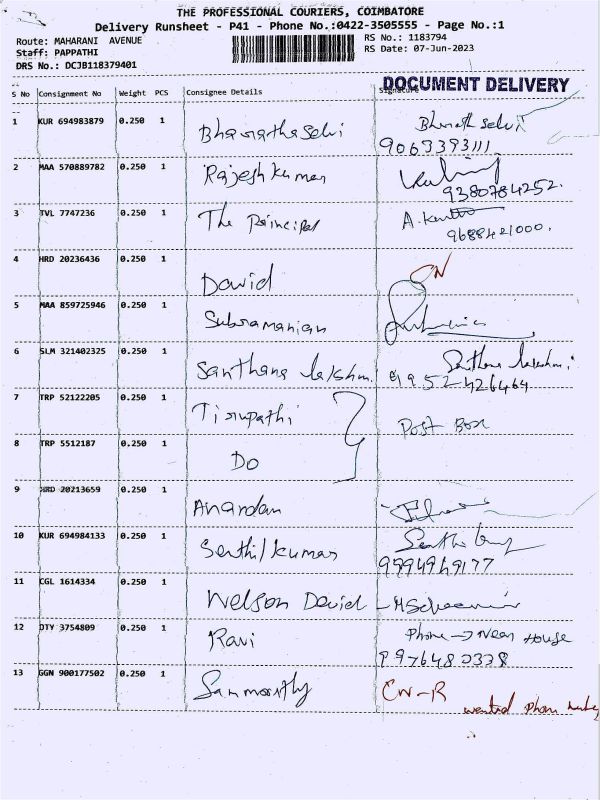 THE PROFESSIONAL COURIERS, COIMBATORE
Delivery Runsheet - P41 - Phone No.:0422-3505555 - Page No.:1
Route: MAHARANI AVENUE
RS No.: 1183794
Staff: PAPPATHI
RS Date: 07-Jun-2023
DRS No.: DCJB118379401
DOCUMENT DELIVERY
S No Consignment No Weight PCS Consignee Details Signature
1 KUR 694983879 0.250 1 Bharathaselvi Bharathselvi
9063393111.
2 MAA 570889782 0.250 1 Rajeshkumar
9380784252.
3 TVL 7747236 0.250 1 The Principal A.
9688421000.
4 HRD 20236436 0.250 1 David
5 MAA 859725946 0.250 1 Subramanian
6 SLM 321402325 0.250 1 Santhana lakshmi Santhana lakshmi
9952426464
7 TRP 52122205 0.250 1 Tirupathi Post Box
8 TRP 5512187 0.250 1 Do
9 HRD 20213659 0.250 1 Anandan
10 KUR 694984133 0.250 1 Senthilkumar
9994949177
11 CGL 1614334 0.250 1 Nelson David
12 DTY 3754809 0.250 1 Ravi Phone → Near House
13 GGN 900177502 0.250 1 CN-R